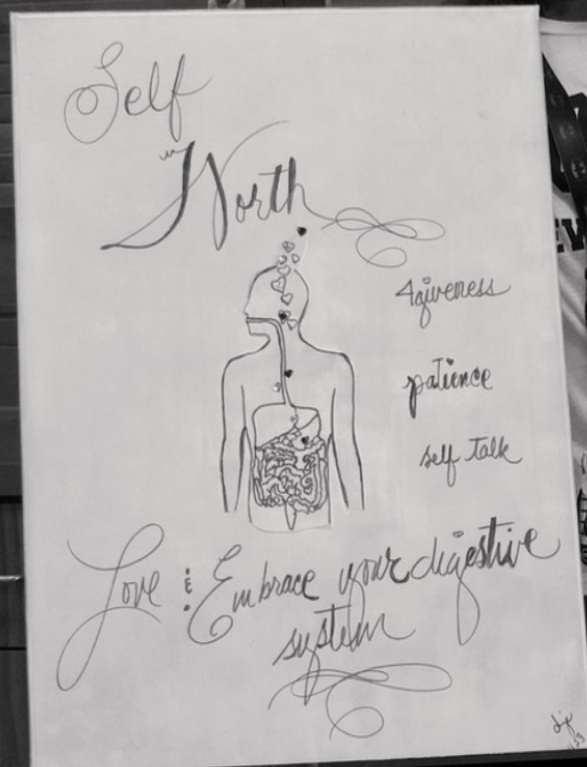 Self
North
4giveness
patience
self talk
Love & Embrace your digestive
system